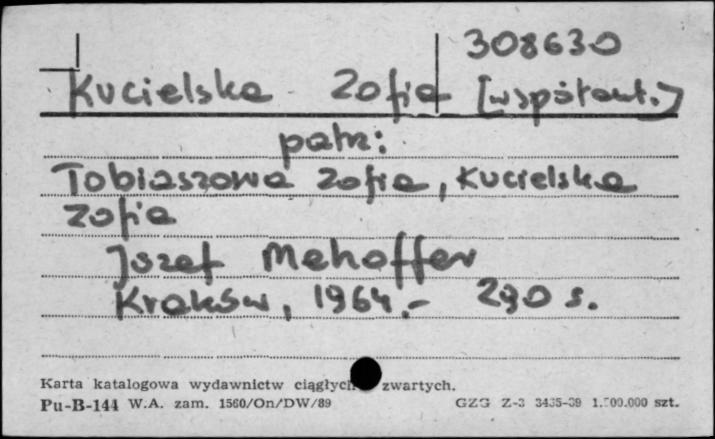 308630
Kucielska Zofia [współaut.]
patrz:
Tobiaszowa Zofia, Kucielska
Zofia
Józef Mehoffer
Kraków, 1964.- 290 s.
Karta katalogowa wydawnictw ciągłych zwartych.
Pu-B-144 W.A. zam. 1560/On/DW/89 GZG Z-3 3435-39 1.500.000 szt.